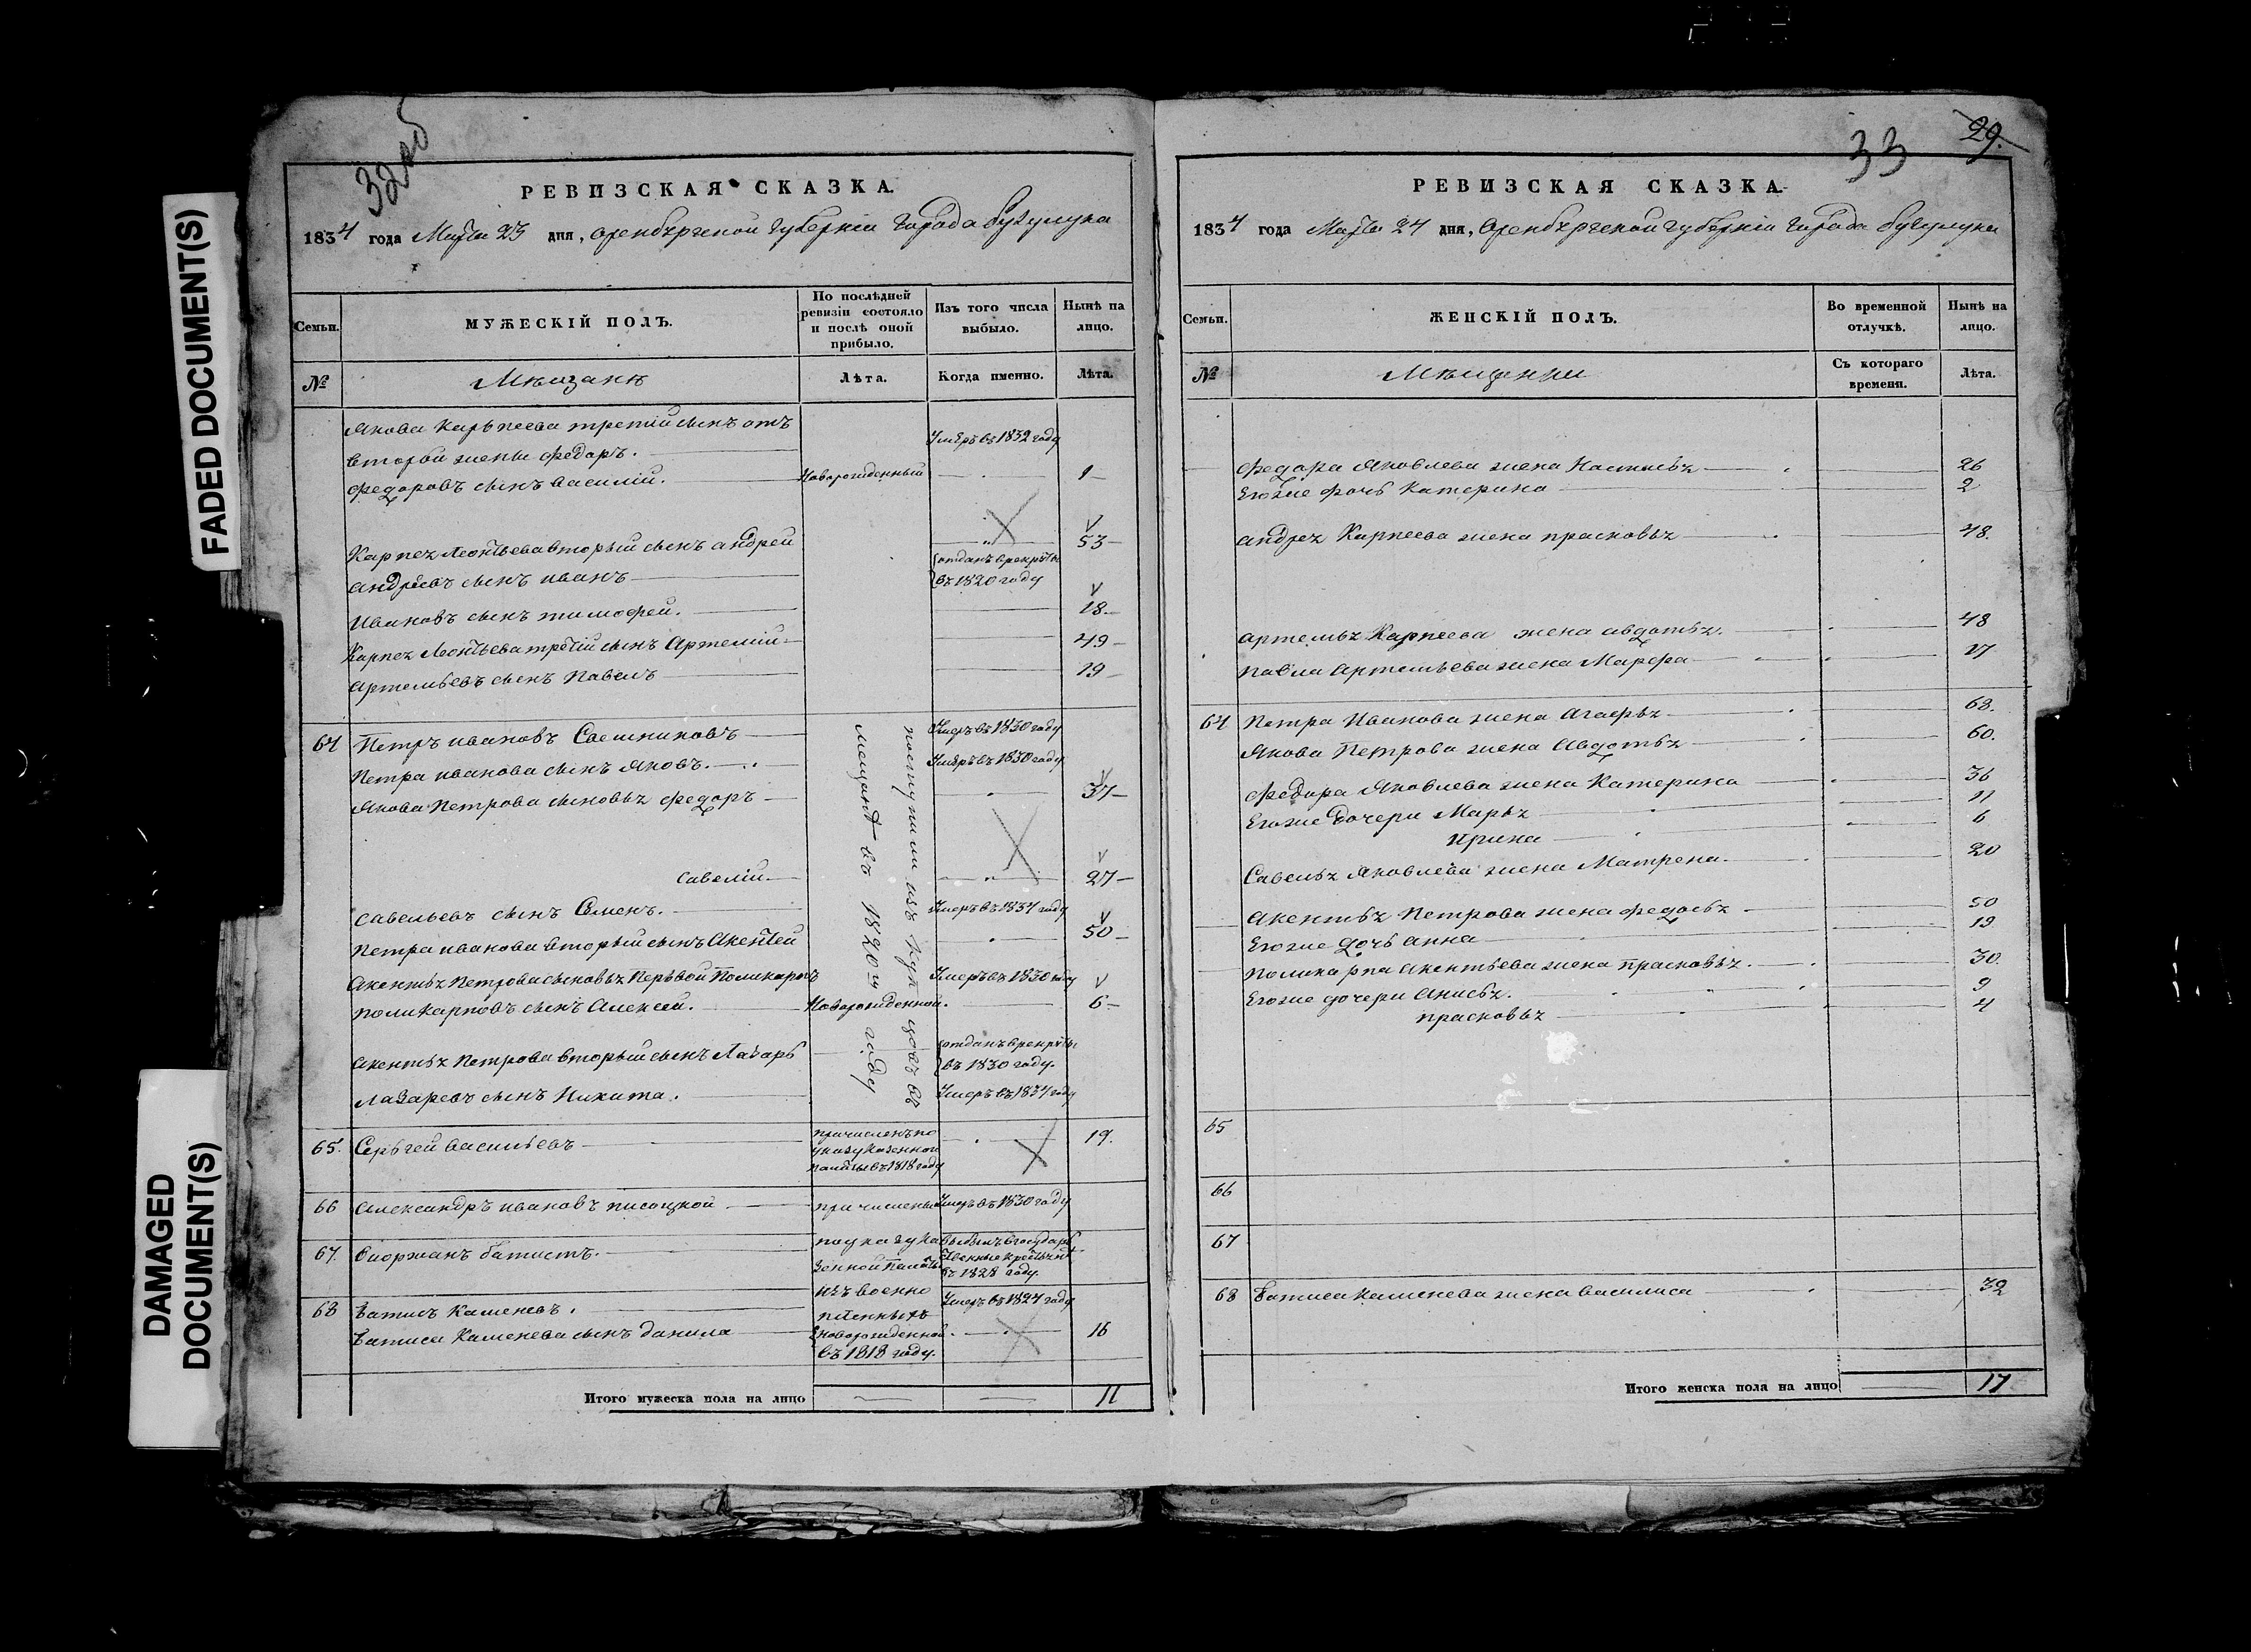 FADED DOCUMENT(S)
DAMAGED
DOCUMENT(S)
32об
РЕВИЗСКАЯ СКАЗКА.
1834 года Марта 23 дня, Оренбургской Губерніи Города Бугулука
Семьи.
МУЖЕСКІЙ ПОЛЪ.
По послѣдней
ревизіи состояло
и послѣ оной
прибыло.
Изъ того числа
выбыло.
Нынѣ на
лицо.
№
Мѣщанъ
Лѣта.
Когда именно.
Лѣта.
Якова Карьпеева третій сынъ отъ
второй жены Федоръ. Умеръ въ 1832 году
Федоровъ сынъ василій. Новорожденный 1
Карпея Леонтьева вторый сынъ андрей 53
андреевъ сынъ иванъ отданъ в рекруты
въ 1820 году
Ивановъ сынъ тимофей. 18
Карпея Леонтьева третій сынъ Артемій 49
Артемьевъ сынъ Павелъ 19
64 Петръ ивановъ Свешниковъ Умеръ въ 1830 году
Петра иванова сынъ Яковъ. Умеръ въ 1830 году
Якова Петрова сыновья федоръ 37
савелій 27
савельевъ сынъ Семенъ. Умеръ въ 1834 году
Петра иванова вторый сынъ Акентей 50
Акентья Петрова сыновья Перьвой Поликарпъ Умеръ въ 1830 году
поликарповъ сынъ Алексей. Новорожденной. 6
Акентья Петрова вторый сынъ Лазарь отданъ в рекруты
въ 1830 году.
лазаревъ сынъ Никита. Умеръ въ 1834 году
поступили изъ купцовъ въ
мещанѣ въ 1820м году
65. Серьгей васильевъ причисленъ по
указу Казенной
палаты въ 1818 году 19.
66 Александръ ивановъ писоцкой причислены Умеръ въ 1830 году
67. Оноржанъ батистъ. по указу Ка
зенной Палаты
выбылъ в государь
ственные крестьянѣ
въ 1828 году.
68 Батисъ Каменевъ. изъ военно
пленныхъ Умеръ въ 1827 году
Батиса Каменева сынъ данила новорожденной
въ 1818 году. 16
Итого мужеска пола на лицо 11
33
29.
РЕВИЗСКАЯ СКАЗКА.
1834 года Марта 24 дня, Оренбургской Губерніи Города Бугулука
Семьи.
ЖЕНСКІЙ ПОЛЪ.
Во временной
отлучкѣ.
Нынѣ на
лицо.
№
Мѣщанки
Съ котораго
времени.
Лѣта.
Федора Яковлева жена Настасья 26
Его же дочь Катерина 2
андрея Карпеева жена прасковья 48.
артемья Карпеева жена авдотья. 48
павла Артемьева жена Марфа 17
64 Петра Иванова жена Агафья 68.
Якова Петрова жена Авдотья 60.
Федора Яковлева жена Катерина 36
Его же дочери Марья 11
Ирина 6
Савелья Яковлева жена Матрена 20
Акентья Петрова жена федосья 50
Его же дочь анна 19
поликарпа Акентьева жена прасковья. 30.
Его же дочери Анисья. 9
прасковья 4
65
66
67
68 Батиса Каменева жена василиса 32
Итого женска пола на лицо 17